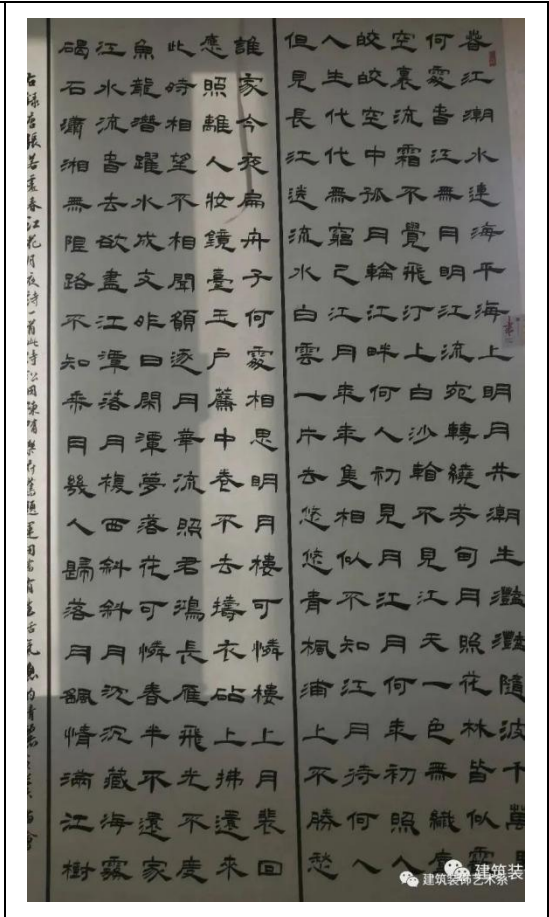 春江潮水連海平海上明月共潮生灩灩隨波千萬
何處春江無月明江流宛轉繞芳甸月照花林皆似霰
空裏流霜不覺飛汀上白沙看不見江天一色無纖塵
皎皎空中孤月輪江畔何人初見月江月何年初照人
人生代代無窮已江月年年隻相似不知江月待何人
但見長江送流水白雲一片去悠悠青楓浦上不勝愁
誰家今夜扁舟子何處相思明月樓可憐樓上月裴回
應照離人妝鏡臺玉戶簾中卷不去擣衣砧上拂還來
此時相望不相聞願逐月華流照君鴻長雁飛光不度
魚龍潛躍水成文昨日閑潭夢落花可憐春半不還家
江水流春去欲盡江潭落月複西斜斜月沉沉藏海霧
碣石瀟湘無限路不知乘月幾人歸落月搖情滿江樹
右録唐張若虛春江花月夜詩一首此詩沿用陳隋樂府舊題運用富有生活氣息的清麗
建筑装
建筑装饰艺术系